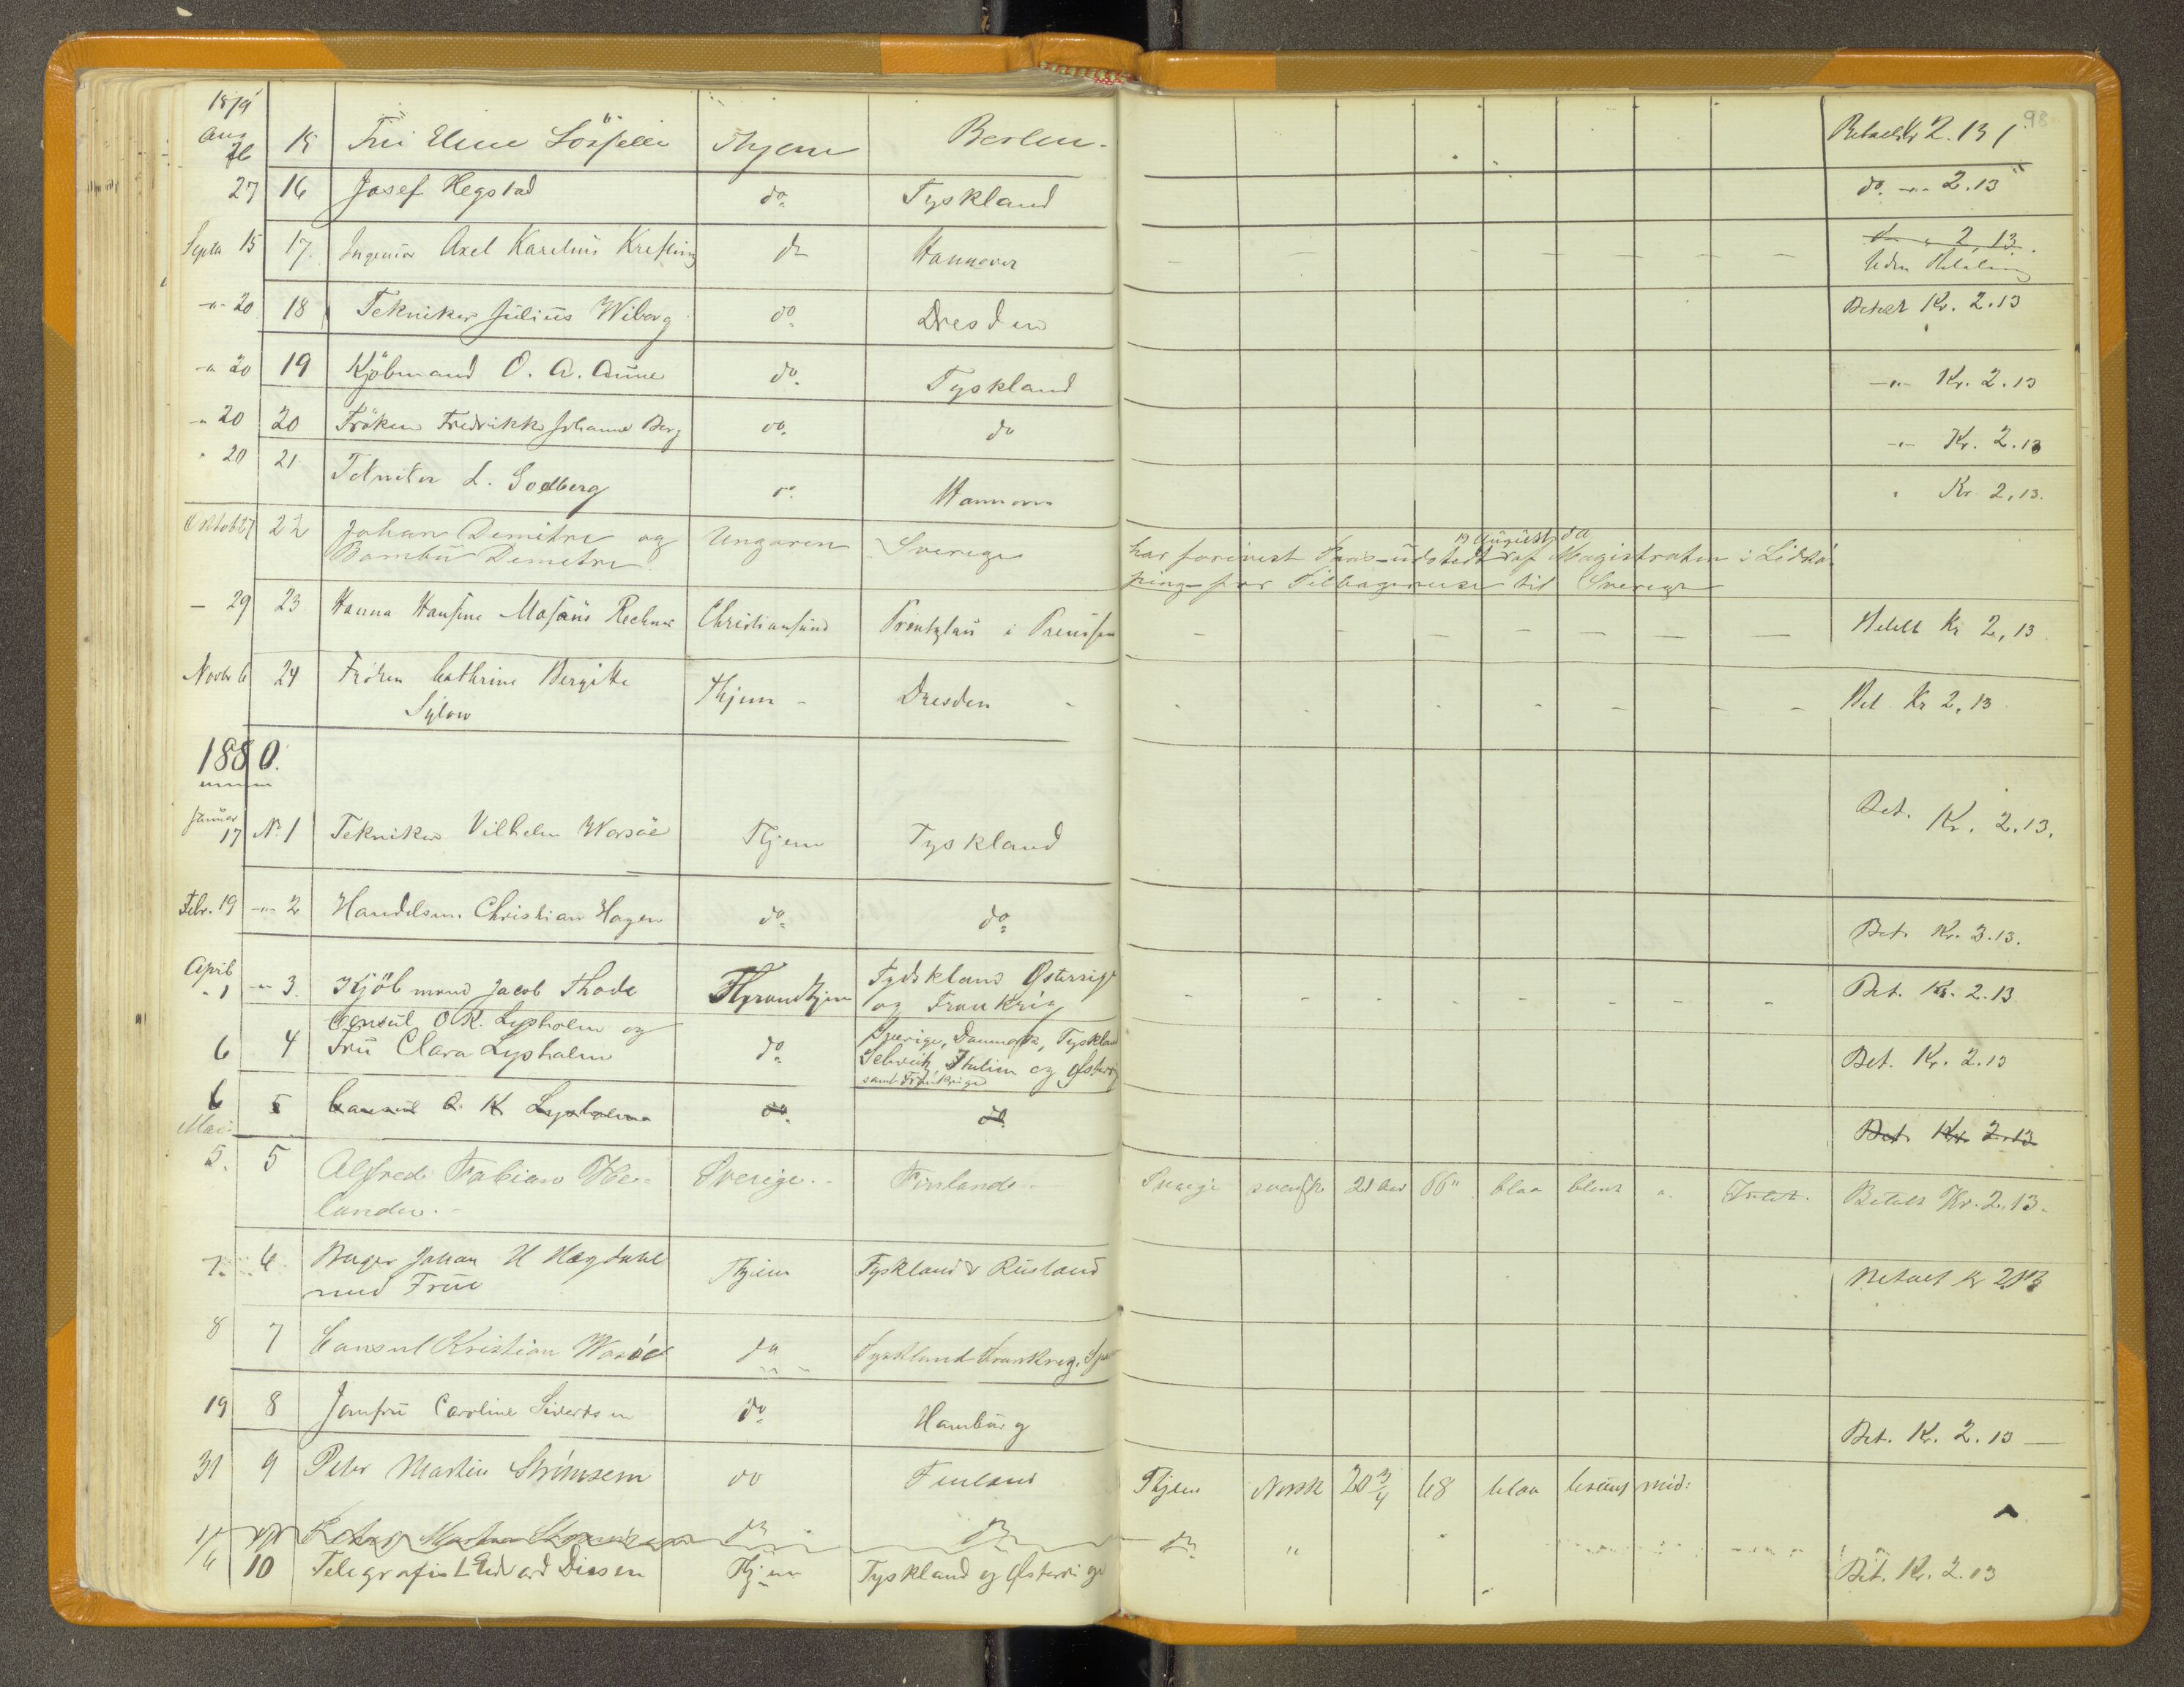 1879 98
Aug 26 15 Eline Thjem Berlin. Betalt Kr 2.13
27 16 Josef Hegstad do. Tyskland do. -"- 2.13
Septb 15 17. Ingeniør Axel Karelius Krefting do Hannover do " 2.13.
Uden Betaling
-"- 20 18 Tekniker Julius Wiberg do. Dresden Betalt Kr. 2.13
-" 20 19 Kjöbmand O. A. Aune do. Tyskland -"- Kr. 2.13
-" 20 20 Fröken Fredrikke Johanne Berg do. do -"- Kr. 2.13
" 20 21 Tekniker L. Hannover " Kr. 2,13.
Oktob 27 22 Johan Demitre og Ungaren Sverige
Demetre
19 August d a
har forevist Pas udstedt af Magistraten i Lidkö-
ping for Tilbagereise til Sverige
- 29 23 Hanna Hansine Christiansund Prentzlau i Preussen Betalt Kr 2,13
Novbr 6 24 Fröken Cathrine Bergitte Thjem - Dresden Bet. Kr 2,13
Sylow
1880.
Januar
17 No 1 Tekniker Vilhelm Worsöe Thjem Tyskland Bet. Kr. 2.13.
Febr. 19 -"- 2 Handelsm. Christian Hagen do. do. Bet. Kr. 2.13.
April
" 1 -"- 3. Kjöbmand Jacob Thode Throndhjem Tydskland Østerrige Bet. Kr. 2.13
og Frankrig
Consul O. K. Lysholm og Sverige, Danmark, Tyskland
6 4 Fru Clara Lysholm do. Schveitz, Italien og Østerrig Bet. Kr. 2.13
samt Frankrige
6 5 Consul O. K. Lysholm do. do. Bet. Kr. 2.13
Mai
5. 5 Alfred Fabian He- Sverige.- Finland.- Sverige svensk 21 Aar 66" blaa blont ". Betalt Kr. 2.13.
lander.-
7. 6 Bager Johan H Hegdahl Thjem Tyskland & Rusland Betalt Kr 2.13
med Frue
8 7 Consul Kristian Worsöe do Tyskland Frankrig.
19 8 Jomfru Caroline Sivertsen do. Hamburg Bet. Kr. 2.13 -
31 9 Peter Martin Strömsem do Finland Thjem Norsk 20 3/4 68 blaa bruns mid:
Peter Martin do do do "
1/6 10 Telegrafist Edvard Diesen Thjem Tyskland og Østerrige Bet. Kr. 2.13